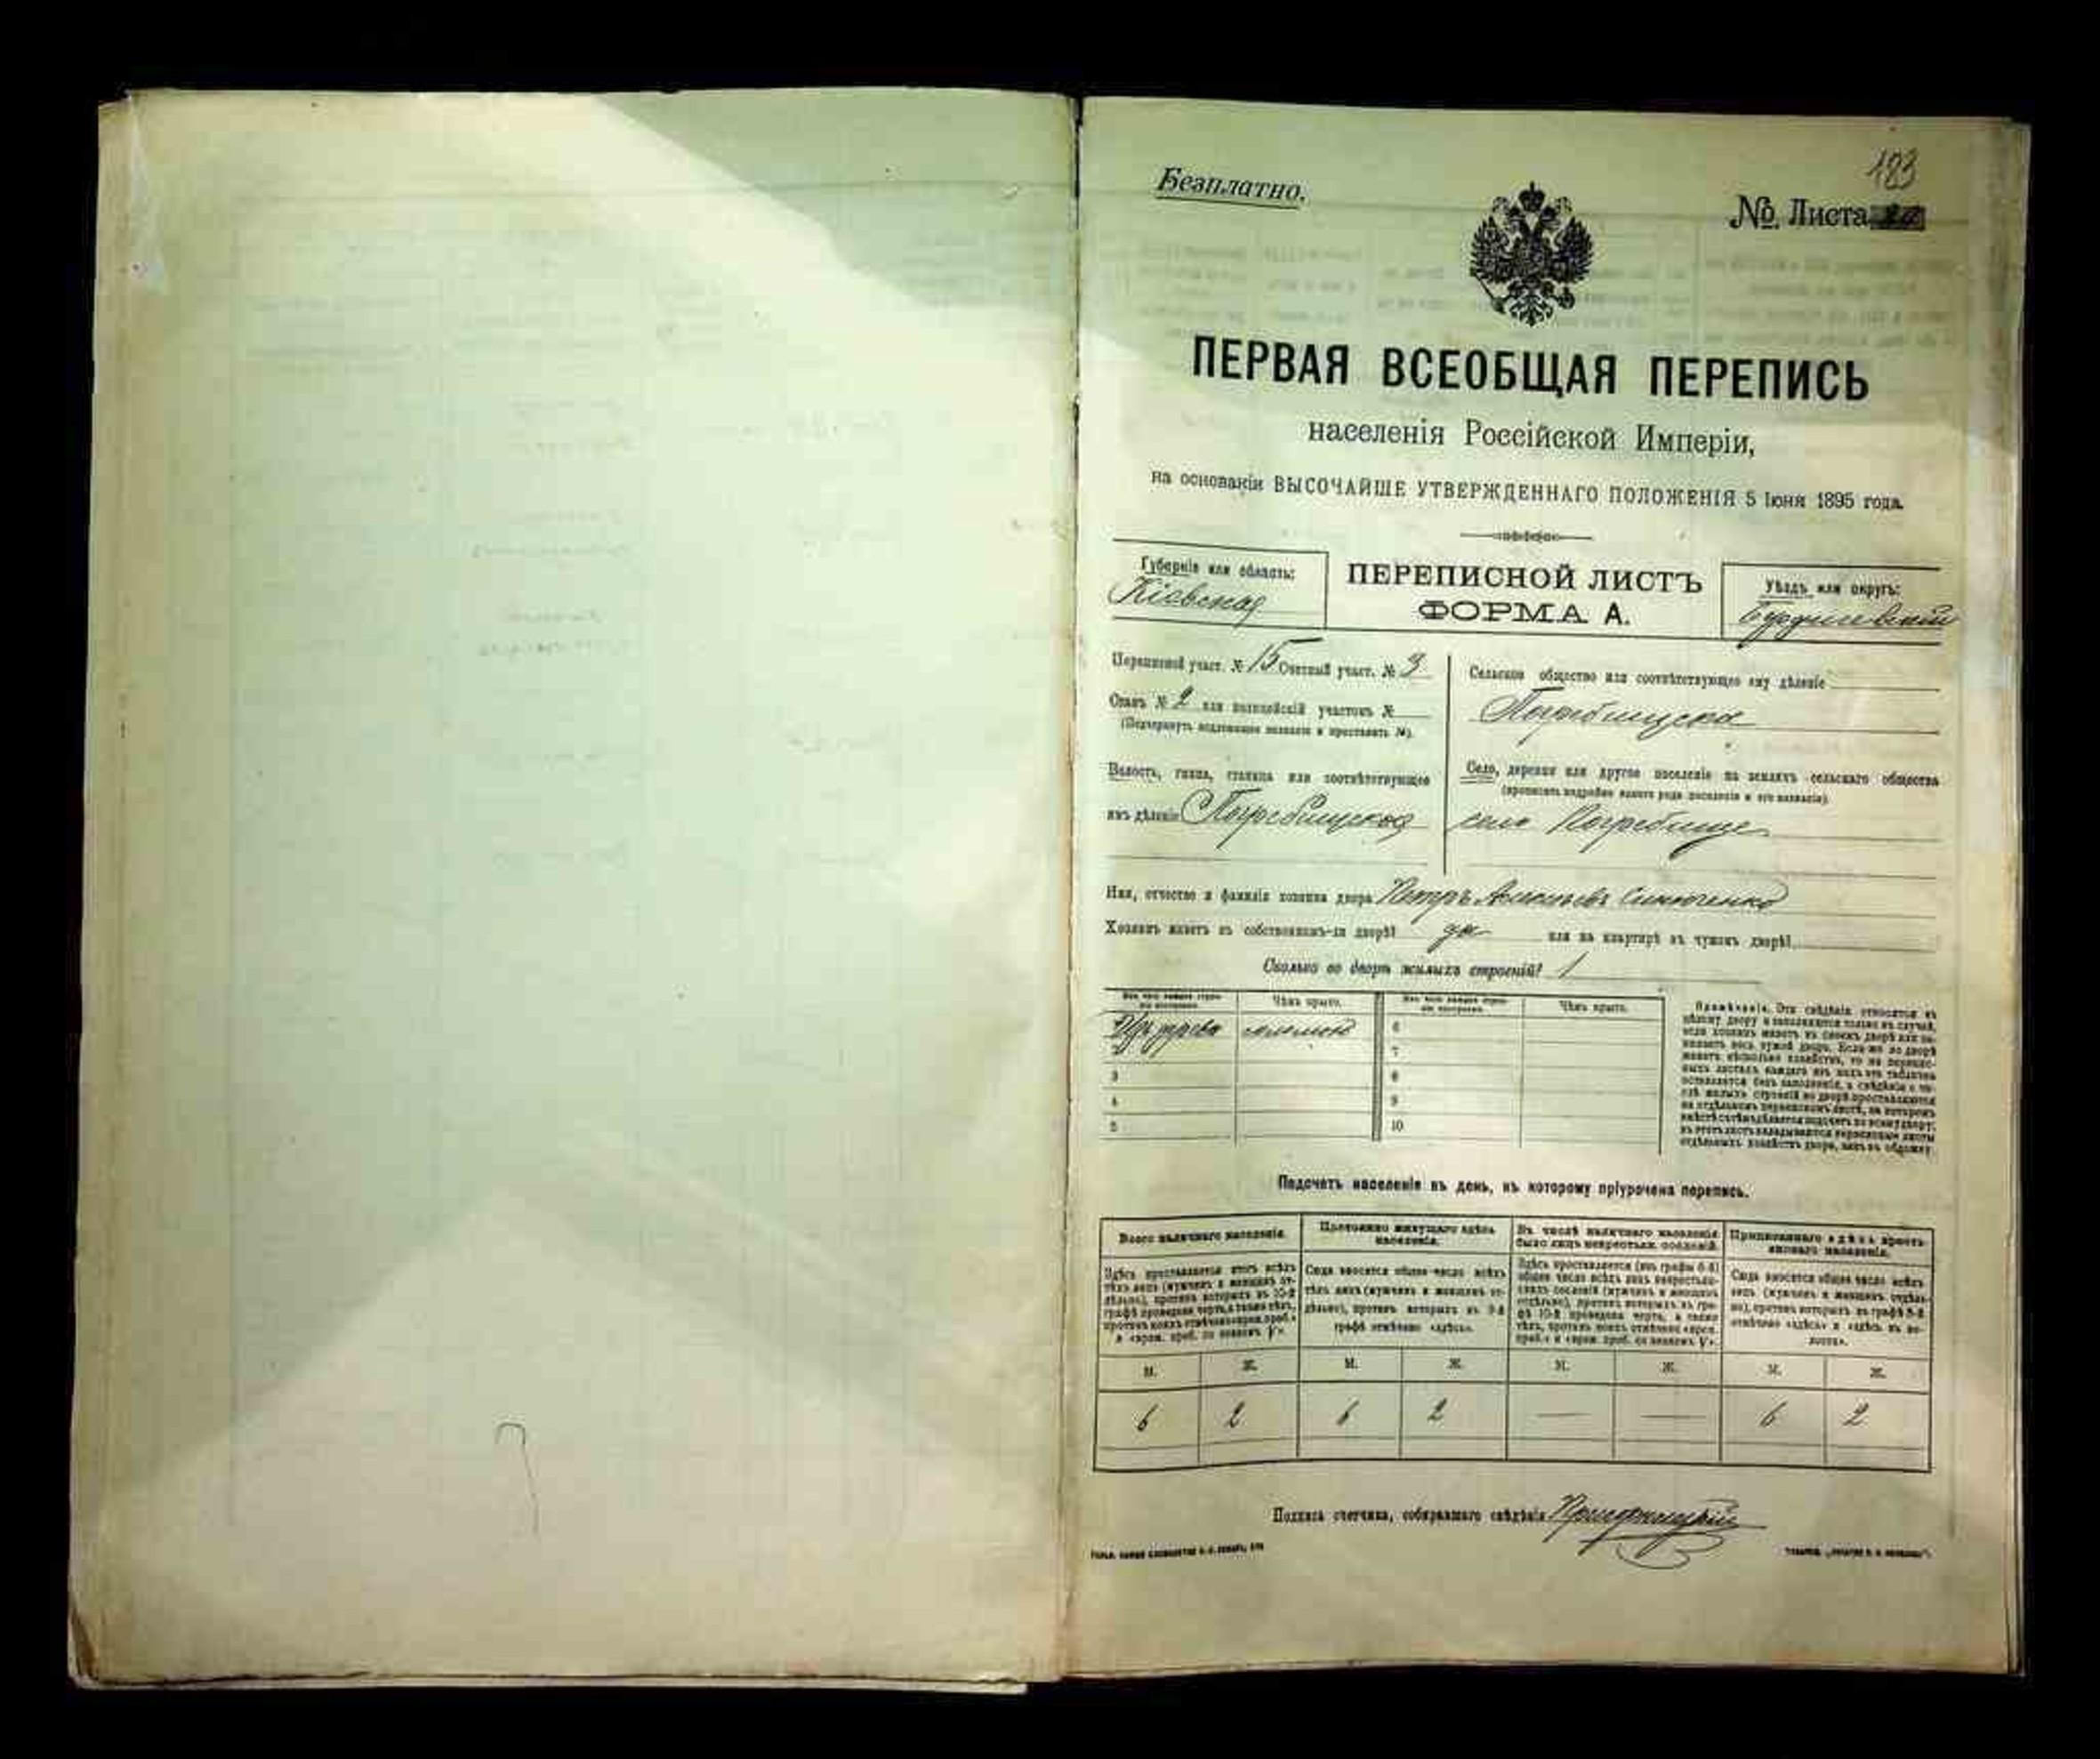 183
Безплатно.
№ Листа
ПЕРВАЯ ВСЕОБЩАЯ ПЕРЕПИСЬ
населенія Россійской Имперіи,
на основаніи ВЫСОЧАЙШЕ УТВЕРЖДЕННАГО ПОЛОЖЕНІЯ 5 Іюня 1895 года.
Губернія или область:
Кіевская
ПЕРЕПИСНОЙ ЛИСТЪ
ФОРМА А.
Уѣздъ или округъ:
Бердичевскій
Переписной участ. № 15 Счетный участ. № 3
Станъ № 2 или полицейскій участокъ №
(Подчеркнуть надлежащее названіе и проставить №).
Волость, гмина, станица или соотвѣтствующее
имъ дѣленіе Погребищская
Сельское общество или соотвѣтствующее ему дѣленіе
Погребищское
Село, деревня или другое поселеніе на земляхъ сельскаго общества
(прописать подробно какого рода поселеніе и его названіе).
село Погребище
Имя, отчество и фамилія хозяина двора Петръ Алексѣевъ
Хозяинъ живетъ въ собственномъ-ли дворѣ? да или на квартирѣ въ чужомъ дворѣ?
Сколько во дворѣ жилыхъ строеній? 1
Изъ чего каждое строеніе построено.
Чѣмъ крыто.
Изъ чего каждое строеніе построено.
Чѣмъ крыто.
Изъ дерева соломою
6
7
3
8
4
9
5
10
Примѣчаніе. Эти свѣдѣнія относятся къ
цѣлому двору и заполняются только въ случаѣ,
если хозяинъ живетъ въ своемъ дворѣ или за-
нимаетъ весь чужой дворъ. Если-же во дворѣ
живетъ нѣсколько хозяйствъ, то на перепис-
ныхъ листахъ каждаго изъ нихъ эта табличка
оставляется безъ заполненія, а свѣдѣнія о чи-
слѣ жилыхъ строеній во дворѣ проставляются
на отдѣльномъ переписномъ листѣ, на которомъ
вмѣстѣ съ тѣмъ дѣлается подсчетъ по всему двору;
въ этотъ листъ вкладываются переписные листы
отдѣльныхъ хозяйствъ двора, какъ въ обложку.
Подсчетъ населенія въ день, къ которому пріурочена перепись.
Всего наличнаго населенія.
Постоянно живущаго здѣсь населенія.
Въ числѣ наличнаго населенія было лицъ некрестьян. сословій.
Приписаннаго здѣсь крестьянскаго населенія.
Здѣсь проставляется итогъ всѣхъ
тѣхъ лицъ (мужчинъ и женщинъ от-
дѣльно), противъ которыхъ въ 10-й
графѣ проведена черта, а также тѣхъ,
противъ коихъ отмѣчено «врем. проб.»
и «врем. проб. со знакомъ V».
Сюда вносится общее число всѣхъ
тѣхъ лицъ (мужчинъ и женщинъ от-
дѣльно), противъ которыхъ въ 9-й
графѣ отмѣчено «здѣсь».
Здѣсь проставляется (изъ графы 6-й)
общее число всѣхъ лицъ некрестьян-
скихъ сословій (мужчинъ и женщинъ
отдѣльно), противъ которыхъ въ гра-
фѣ 10-й проведена черта, а также
тѣхъ, противъ коихъ отмѣчено «врем.
проб.» и «врем. проб. со знакомъ V».
Сюда вносится общее число всѣхъ
лицъ (мужчинъ и женщинъ отдѣль-
но), противъ которыхъ въ графѣ 8-й
отмѣчено «здѣсь» и «здѣсь въ во-
лости».
М. Ж. М. Ж. М. Ж. М. Ж.
6 2 6 2 — — 6 2
Подпись счетчика, собиравшаго свѣдѣнія